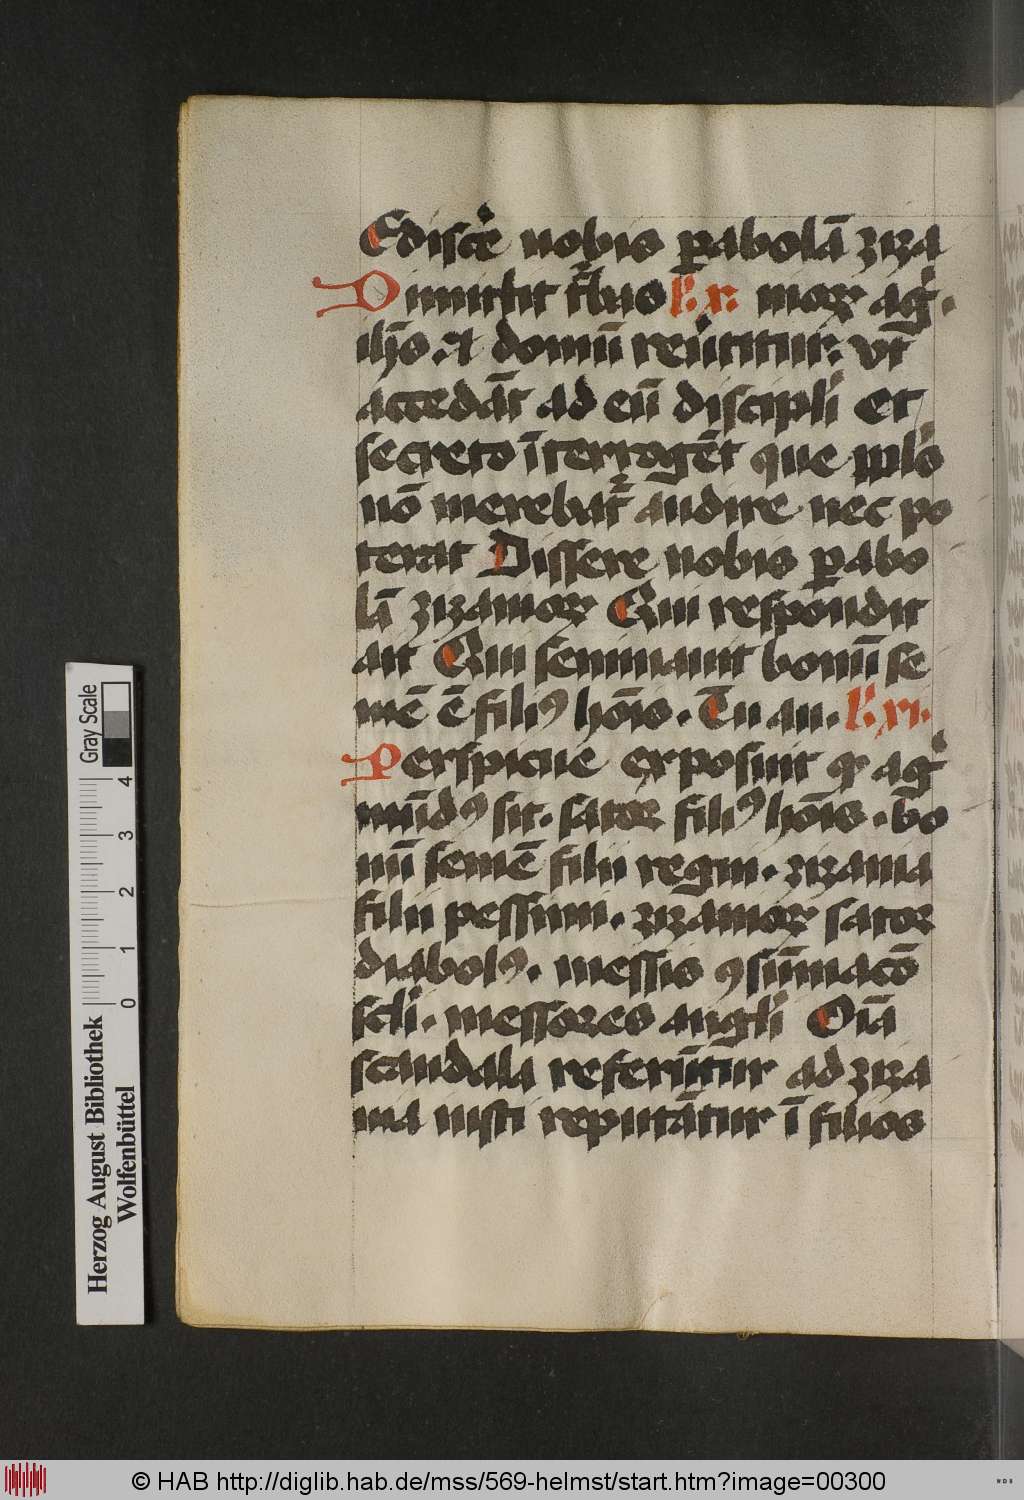 Ediscere nobis parabolā ziza
Dimittit turbas L. x. nioꝝ agri.
ihūs. et domū reuertitur. vt
accedāt ad eū discipuli Et
secreto īterrogēt que ppls
nō merebatur audire nec po
terat Dissere nobis parabo
lā zizanioꝝ Qui respondit
ait Qui seminauit bonū se
mē ē filiꝰ hōis. Tu au. L. xi.
Perspicue exposuit qꝛ ager
mūdꝰ sit. sator filiꝰ hōis. bo
nū semē filii regni. zizania
filii pessimi. zizanioꝝ sator
diabolꝰ. messis ꝯsūmacō
scli. messores angli Oīa
scandala referūtur ad ziza
nia iusti reputātur ī filios
Gray Scale
4
3
2
1
0
Herzog August Bibliothek
Wolfenbüttel
© HAB http://diglib.hab.de/mss/569-helmst/start.htm?image=00300